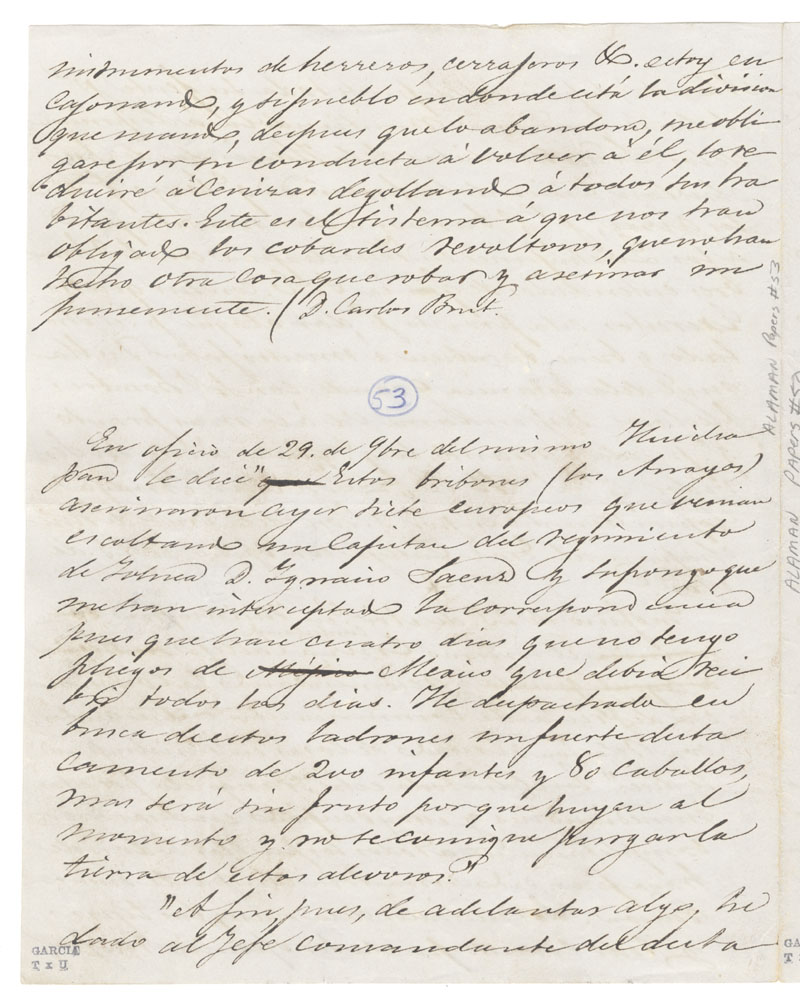 instrumentos de herreros, cerrajeros &. estoy en
cajonando, y si pueblo en donde está la division
que mando, despues que lo abandono, me obli
gase por su conducta á volver á él, lo re
duciré á cenizas degollando á todos sus ha
bitantes. Este es el sistema á que nos han
obligado los cobardes revoltosos, que no han
hecho otra cosa que robar y asesinar im
punemente. ( D. Carlos Brut.
53
En oficio de 29. de 9bre del mismo Hueicha
pan le dice " que Estos bribones (los Anayas)
asesinaron ayer siete europeos que venian
escoltando un Capitan del regimiento
de Toluca D. Ygnacio Saenz y supongo que
me han interceptado la correspondencia
pues que hace cuatro dias que no tengo
pliegos de Méjico Mexico que debia reci
bir todos los dias. He despachado en
busca de estos ladrones un fuerte desta
camento de 200 infantes y 80 caballos,
mas será sin fruto por que huyen al
momento y no se consigue purgar la
tierra de estos alevosos."
"A fin, pues, de adelantar algo, he
dado al Jefe comandante del desta
GARCIA
T x U
ALAMAN Papers #53
ALAMAN PAPERS #53
GA
T